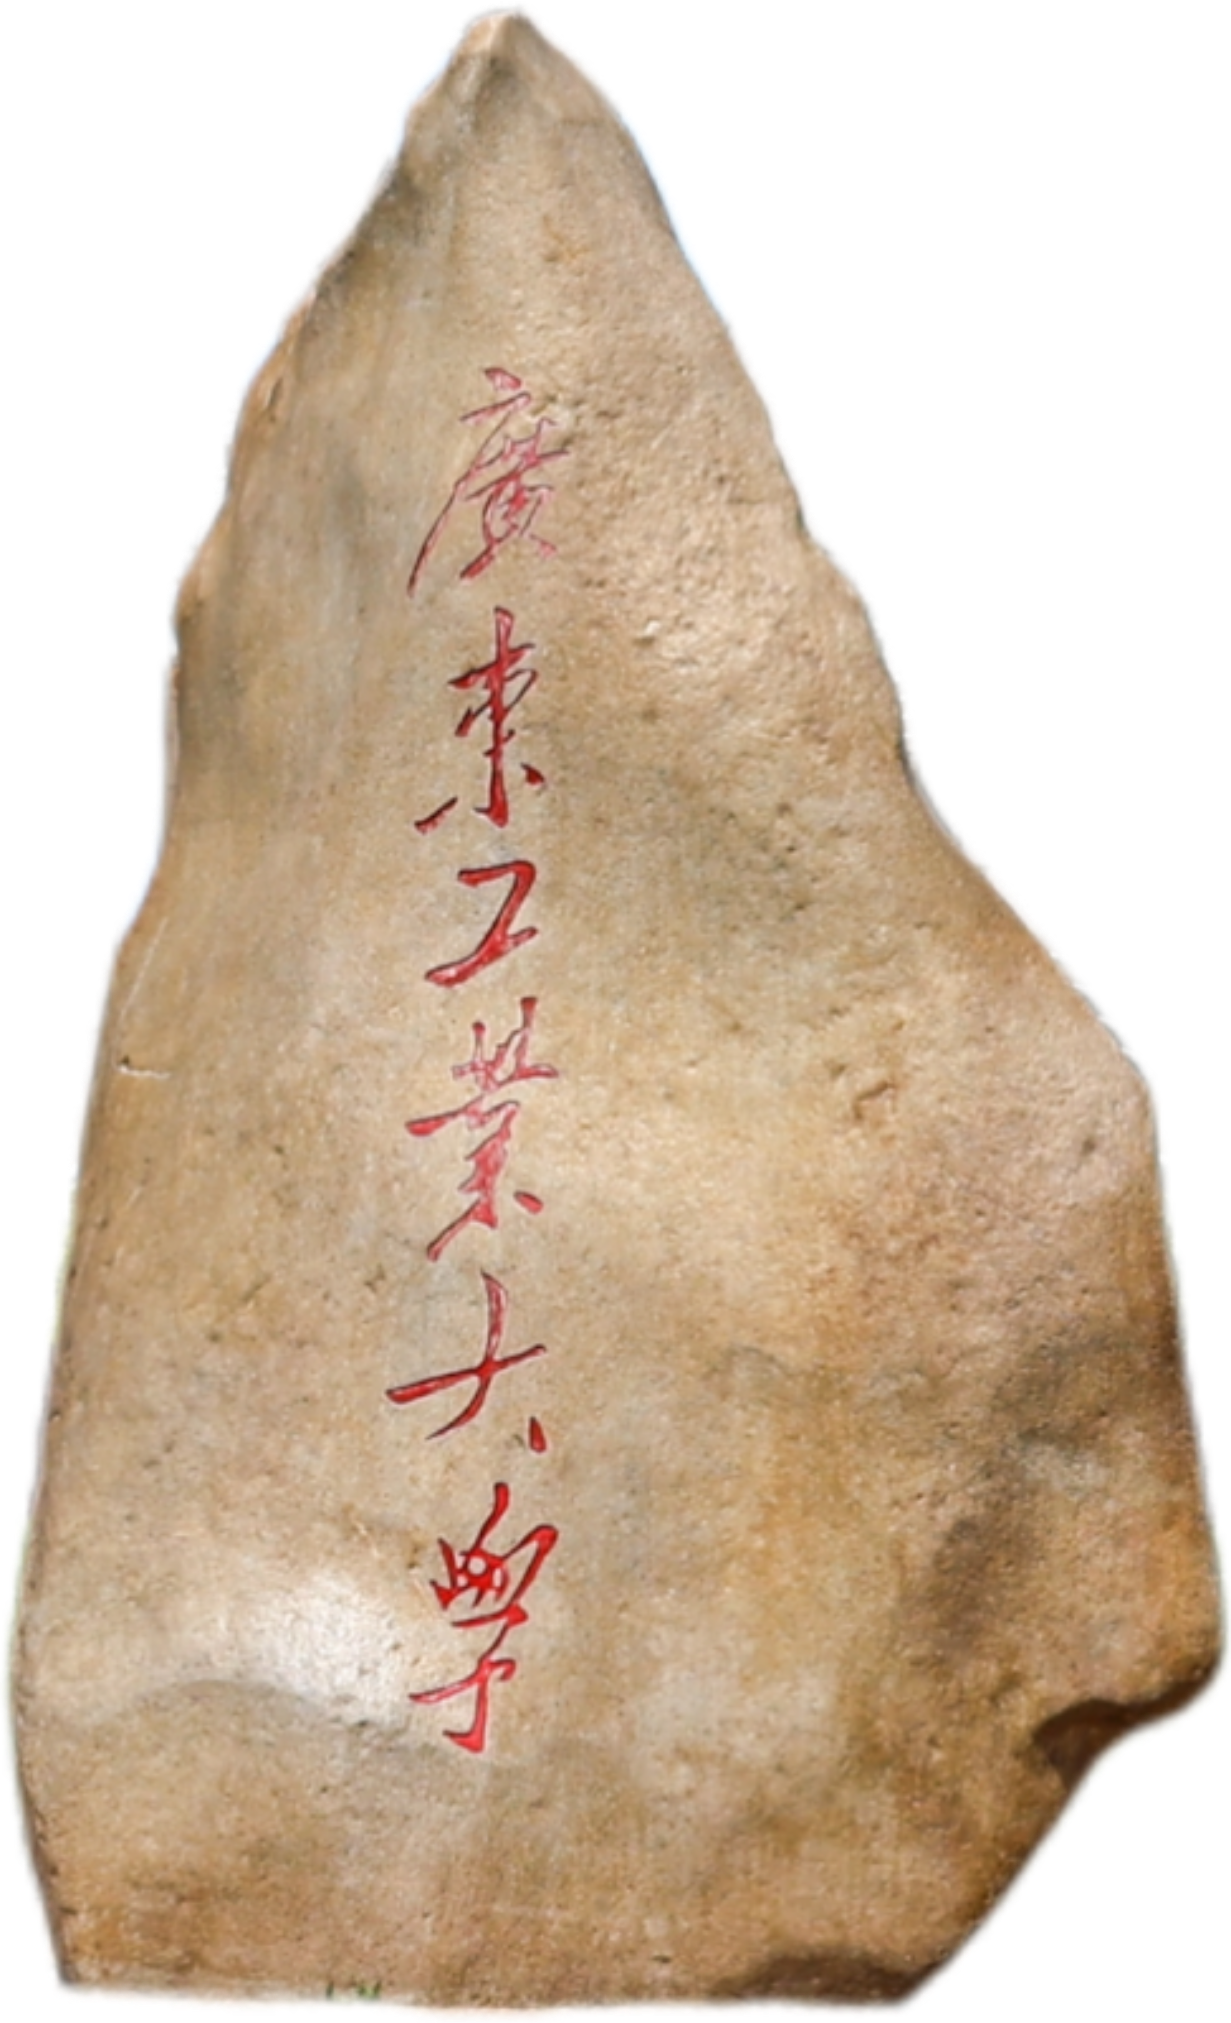 廣東工業大學